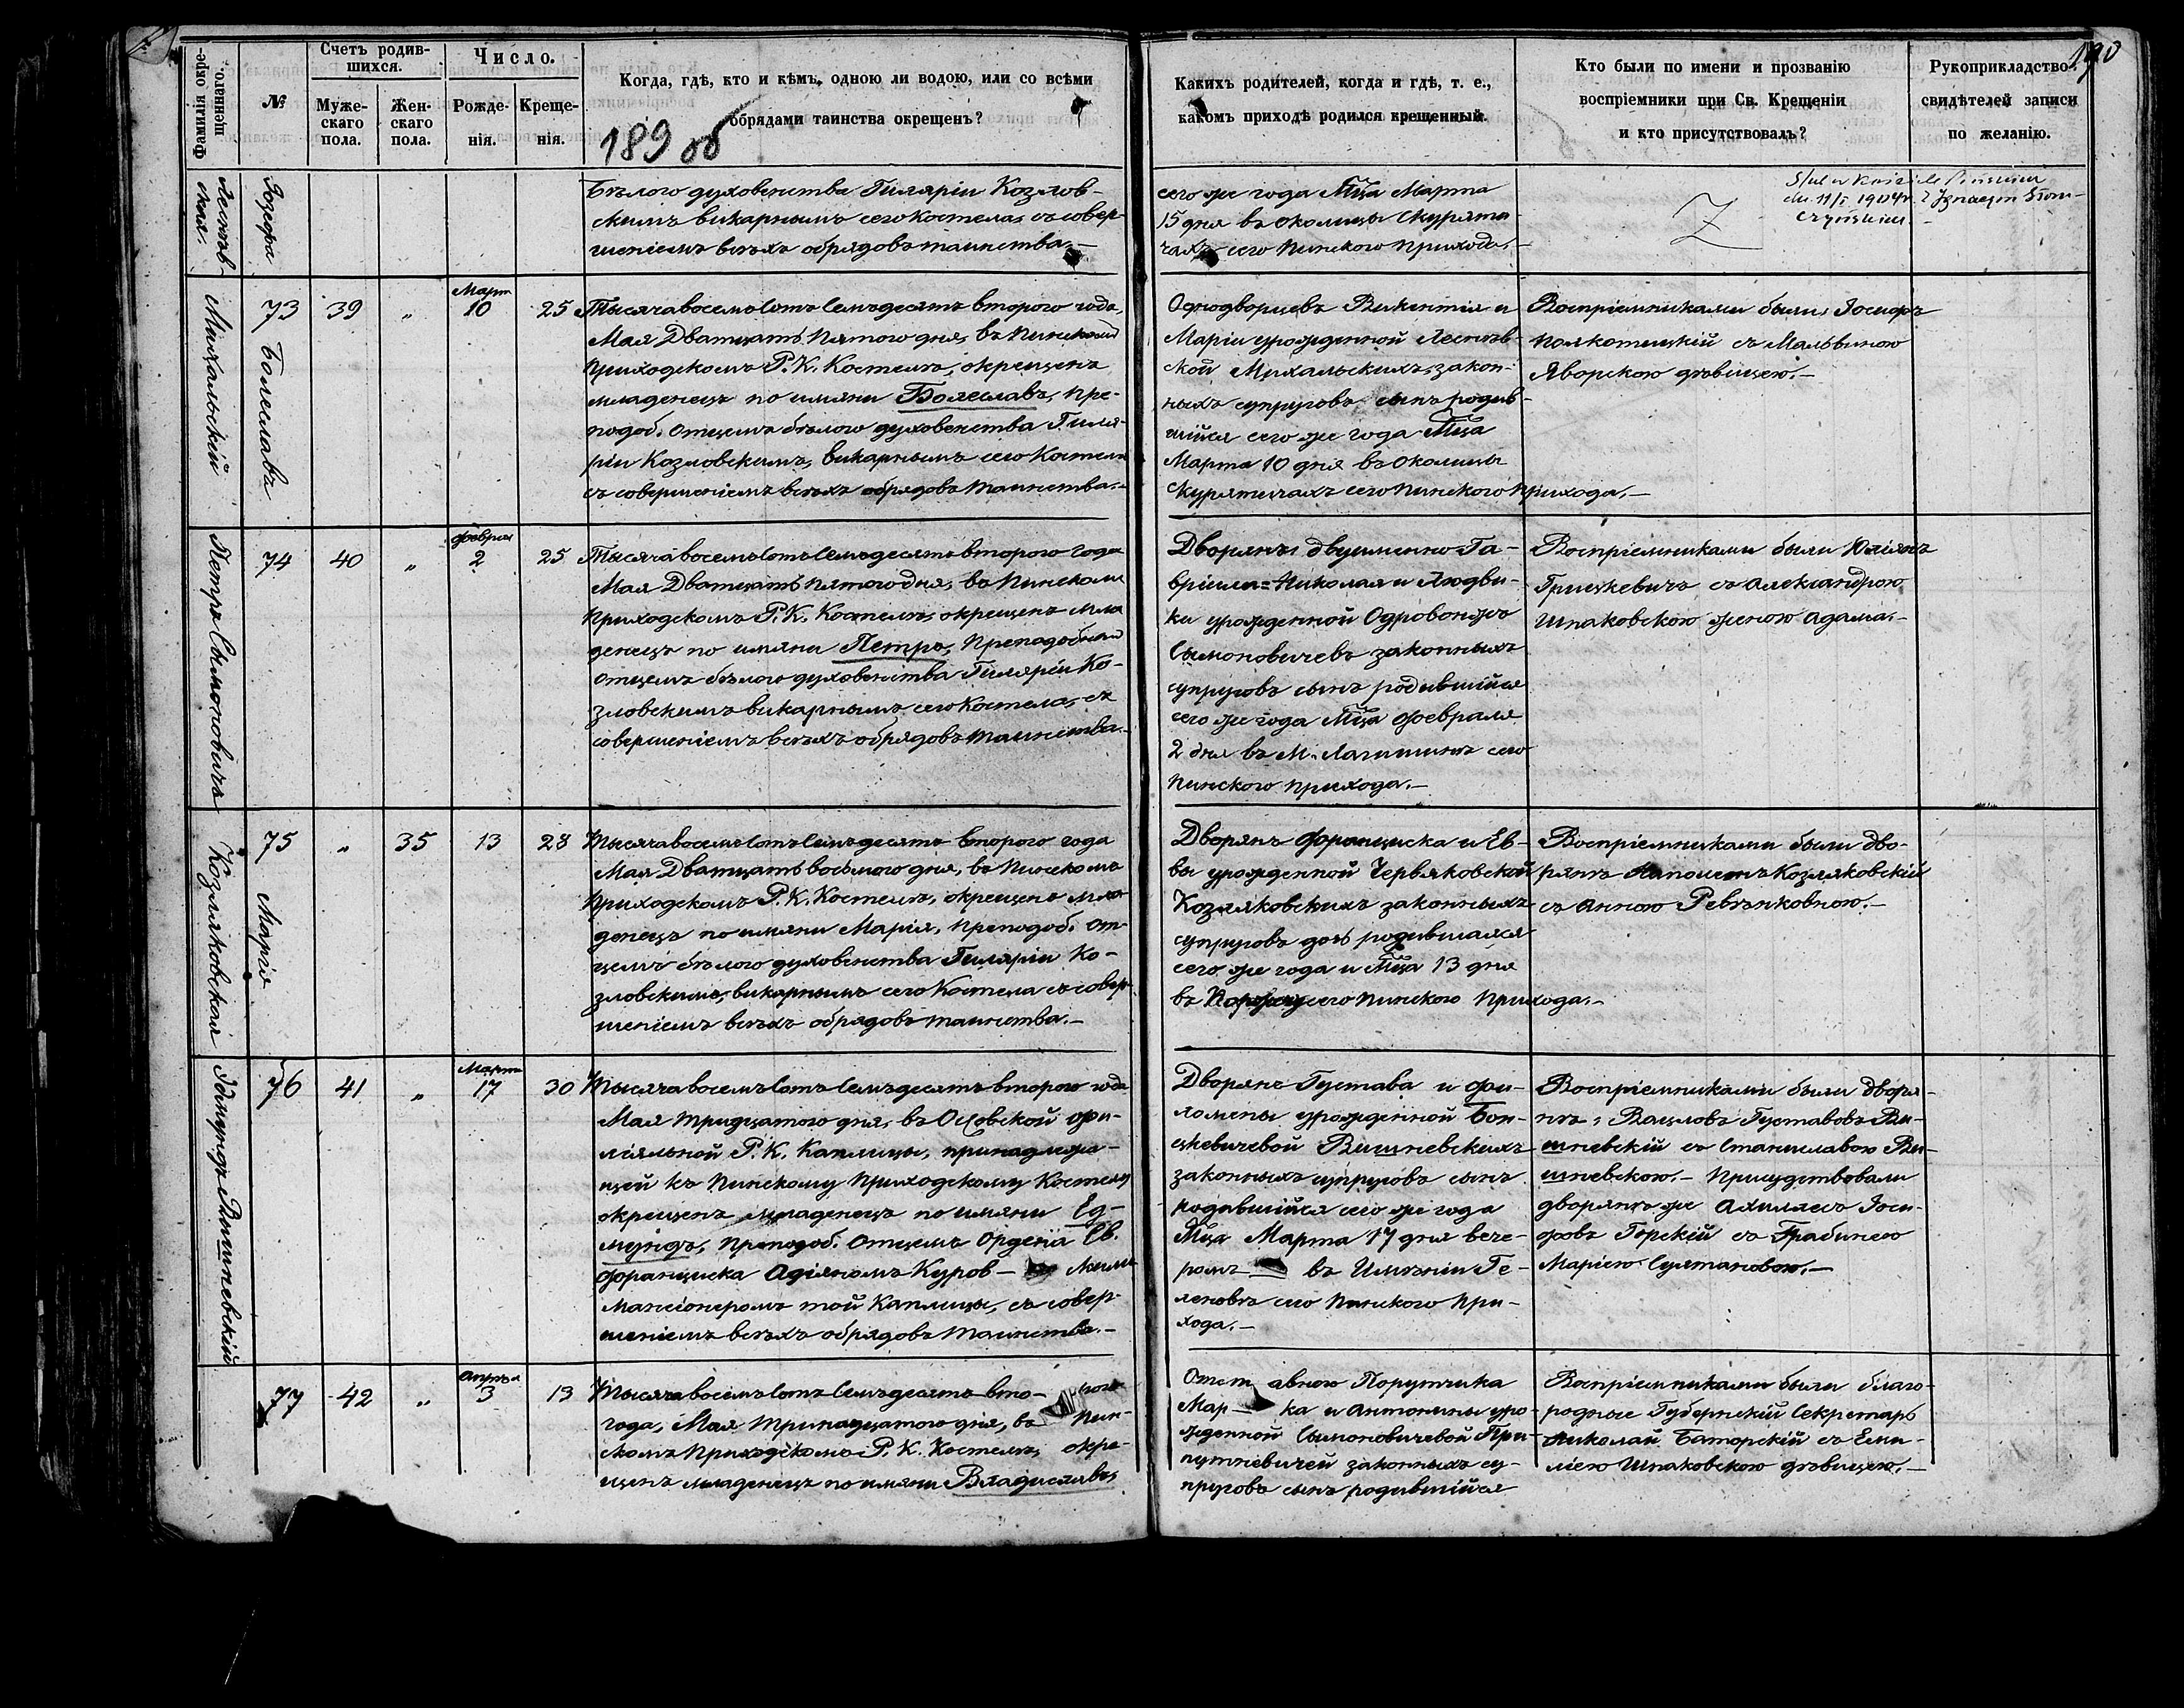 190
Фамилія окре-
щеннаго.
№
Счетъ родив-
шихся.
Муже-
скаго
пола.
Жен-
скаго
пола.
Число.
Рожде-
нія.
Креще-
нія.
Когда, гдѣ, кто и кѣмъ, одною ли водою, или со всѣми
обрядами таинства окрещенъ?
189 об
Какихъ родителей, когда и гдѣ, т. е.,
какомъ приходѣ родился крещенный.
Кто были по имени и прозванію
воспріемники при Св. Крещеніи
и кто присутствовалъ?
Рукоприкладство
свидѣтелей записи
по желанію.
Бѣлого духовенства Гиляріи Козлов-
скимъ викарнымъ сего Костела, съ совер-
шеніемъ всѣхъ обрядовъ таинства.—
сего же года Мца Марта
15 дня въ околицы Скурята-
чахъ сего Пинского Прихода.—
Михальскій
73
Болеславъ
39
"
Март
10
25
Тысяча восемьсотъ семьдесятъ второго года,
Мая Дватцать Пятого дня, въ Пинскомъ
Приходскомъ Р. К. Костелѣ, окрещенъ
младенецъ по имяни Болеславъ, Пре-
подоб. Отцемъ бѣлого духовенства Гиля-
ріи Козловскимъ, викарнымъ сего Костела
съ совершеніемъ всѣхъ обрядовъ таинства.—
Однодворцевъ Викентія и
Маріи урожденной Лесков-
ской Михальскихъ, закон-
ныхъ супруговъ сынъ родив-
шійся сего же года Мца
Марта 10 дня въ Околицы
Скурятичахъ сего Пинского Прихода.—
Воспріемниками были, Іосифъ
Полкотицкій съ Мальвиною
Яворскою дѣвицею.—
Петръ Сымоновичъ
74
40
"
Феврал
2
25
Тысяча восемьсотъ семьдесятъ второго года
Мая Дватцать Пятого дня, въ Пинскомъ
Приходскомъ Р. К. Костелѣ, окрещенъ мла
денецъ по имяни Петръ, Преподобным
Отцемъ бѣлого духовенства Гиляріи Ко-
зловскимъ викарнымъ сего Костела, съ
совершеніемъ всѣхъ обрядовъ таинства.—
Дворянъ двуименно Га-
бріиля=Николая и Людви-
ки урожденной Одровонжъ
Сымоновичевъ законныхъ
супруговъ сынъ родившійся
сего же года Мца Февраля
2 дня въ М. Лагишинѣ сего
Пинского Прихода.—
Воспріемниками были Юліянъ
Грицкевичъ съ Александрою
Шпаковскою женою Адама.—
Козляковская
75
Марія
"
35
13
28
Тысяча восемьсотъ семьдесятъ второго года
Мая Дватцать восьмого дня, въ Пинскомъ
Приходскомъ Р. К. Костелѣ, окрещенъ мла
денецъ по имяни Марія, Преподоб. От-
цемъ бѣлого духовенства Гиляріи Ко-
зловскимъ, викарнымъ сего Костела съ совер-
шеніемъ всѣхъ обрядовъ таинства.—
Дворянъ Франциска и Ев-
вы урожденной Червяковской
Козляковскихъ законныхъ
супруговъ дочь родившаяся
сего же года и Мца 13 дня
въ сего Пинского Прихода.—
Воспріемниками были дво-
рянъ Наполеонъ Козляковскій
съ Анною Ревѣнковною.—
Эдмундъ Вишневскій
76
41
"
Марта
17
30
Тысяча восемьсотъ семьдесятъ второго года
Мая тридцатого дня, въ Осовской фи-
ліяльной Р. К. Каплицы, принадлежа-
щей къ Пинскому Приходскому Костелу
окрещенъ младенецъ по имяни Ед-
мундъ, Преподоб. Отцемъ Ордена Св.
Франциска Адіяномъ Куров-
Мансіонеромъ той Каплицы, съ совер-
шеніемъ всѣхъ обрядовъ таинства.—
Дворянъ Густава и Фи-
ломены урожденной Бон-
цкевичевой Вишневскихъ
законныхъ супруговъ сынъ
родившійся сего же года
Мца Марта 17 дня вече-
ромъ въ Имѣніи Ге-
леновѣ сего Пинского При-
хода.—
Воспріемниками были дворя-
нѣ: Вацловъ Густавовъ Ви-
шневскій съ Станиславою Ви-
шневскою.— Присудствовали
дворянѣ же Ахиллесъ Іоси-
фовъ Горскій съ Грабинею
Маріею Султановою.—
77
42
"
Апрѣл
3
13
Тысяча восемьсотъ семьдесятъ вто- рого
года, Мая тринадцатого дня, въ Пин-
скомъ Приходскомъ Р. К. Костелѣ, окре-
щенъ младенецъ по имяни Владиславъ,
Отст авного Порутчика
Мар ка и Антонины уро-
жденной Сымоновичевой При-
путневичей законныхъ су-
пруговъ сынъ родившійся
Воспріемниками были благо-
родные Губернскій Секретарь
Николай Баторскій съ Еми-
ліею Шпаковскою дѣвицею.—